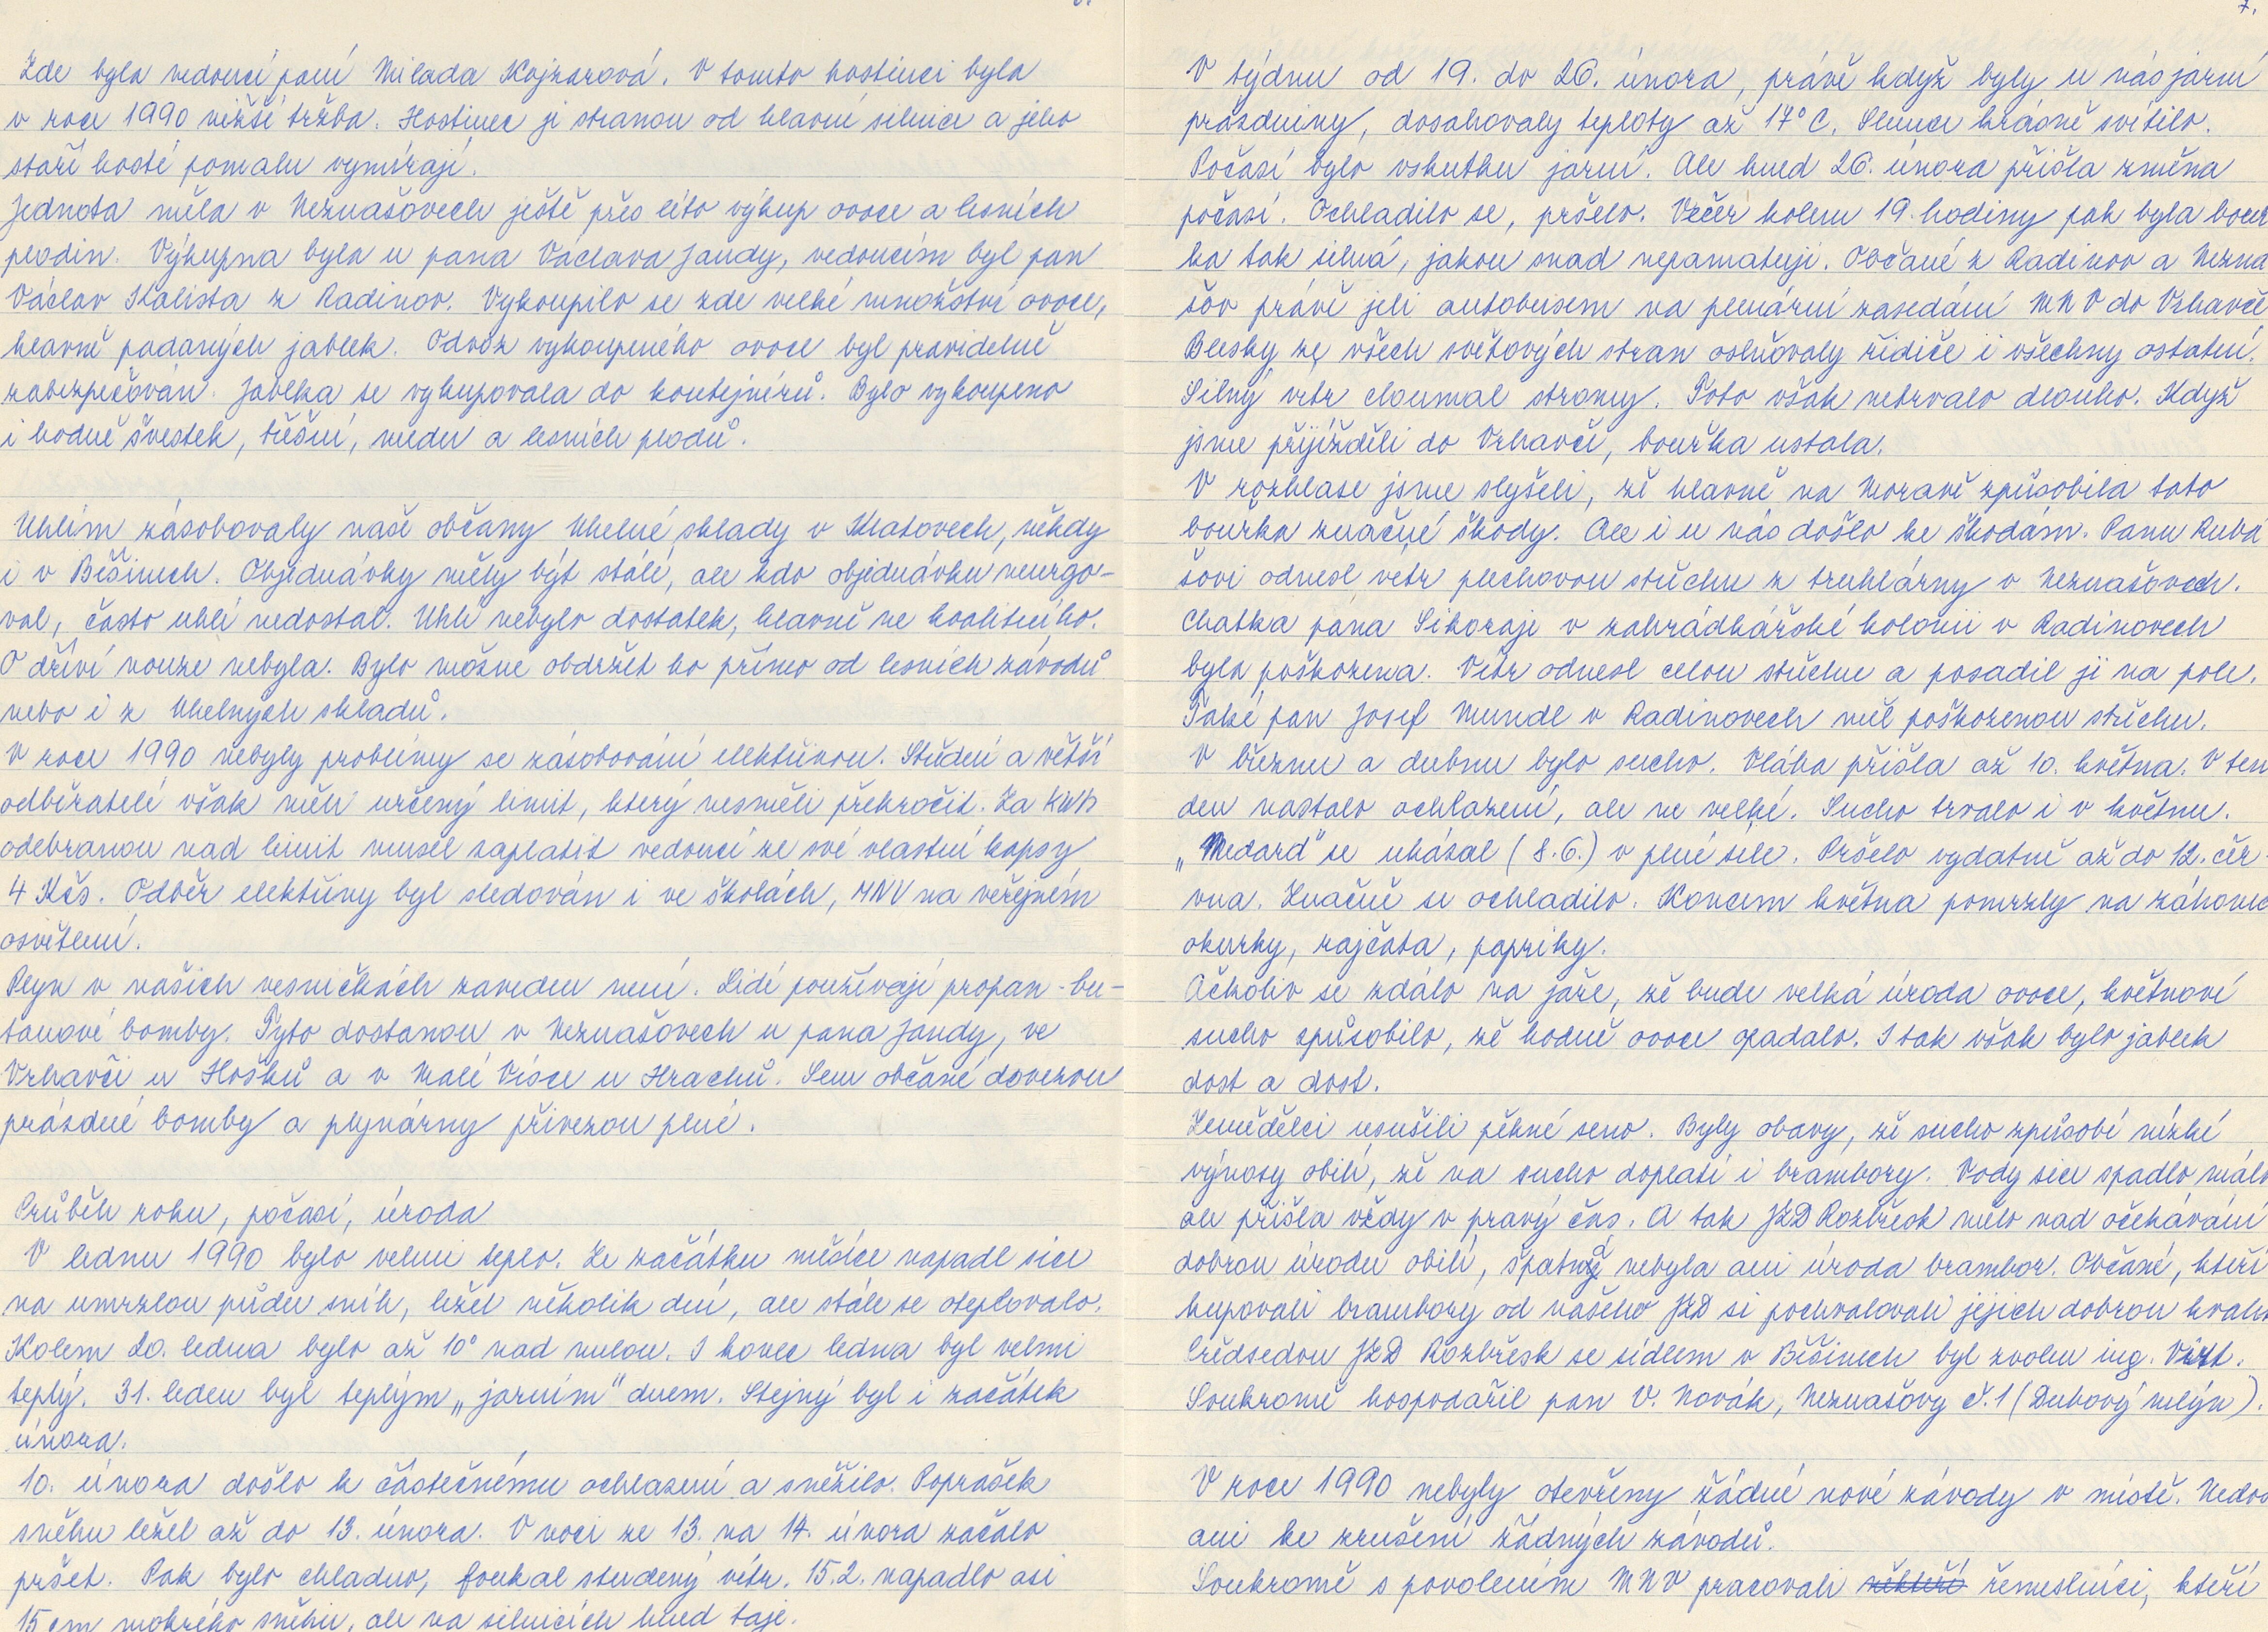 Zde byla vedoucí paní Milada Kojzarová. V tomto hostinci byla
v roce 1990 nižší tržba. Hostinec je stranou od hlavní silnice a jeho
staří hosté pomalu vymírají.
Jednota měla v Neznašovech ještě přes léto výkup ovoce a lesních
plodin. Výkupna byla u pana Václava Jandy, vedoucím byl pan
Václav Kalista z Radinov. Vykoupilo se zde velké množství ovoce,
hlavně padaných jablek. Odvoz vykoupeného ovoce byl pravidelně
zabezpečován. Jablka se vykupovala do kontejnérů. Bylo vykoupeno
i hodně švestek, třešní, medu a lesních plodů.
Uhlím zásobovaly naše občany Uhelné sklady v Klatovech, někdy
i v Běšinech. Objednávky měly být stálé, ale kdo objednávku neurgo-
val, často uhlí nedostal. Uhlí nebylo dostatek, hlavně ne kvalitního.
O dříví nouze nebyla. Bylo možne obdržet ho přímo od lesních závodů
nebo i z Uhelných skladů.
V roce 1990 nebyly problémy se zásobování elektřinou. Střední a větší
odběratelé však měli určený limit, který nesměli překročit. Za kWh
odebranou nad limit musel zaplatit vedoucí ze své vlastní kapsy
4 Kčs. Odběr elektřiny byl sledován i ve školách, MNV na veřejném
osvětlení.
Plyn v našich vesničkách zaveden není. Lidé používají propan-bu-
tanové bomby. Tyto dostanou v Neznašovech u pana Jandy, ve
Vrhavči u Hošků a v Malé Vísce u Hrachů. Sem občané dovezou
prázdné bomby a plynárny přivezou plné.
Průběh roku, počasí, úroda
V lednu 1990 bylo velmi teplo. Ze začátku měsíce napadl sice
na umrzlou půdu sníh, ležel několik dní, ale stále se oteplovalo.
Kolem 20. ledna bylo až 10° nad nulou. I konec ledna byl velmi
teplý. 31. leden byl teplým „jarním" dnem. Stejný byl i začátek
února.
10. února došlo k částečnému ochlazení a sněžilo. Poprašek
sněhu ležel až do 13. února. V noci ze 13. na 14. února začalo
pršet. Pak bylo chladno, foukal studený vítr. 15.2. napadlo asi
15 cm mokrého sněhu, ale na silnicích hned taje.
7.
V týdnu od 19. do 26. února, právě když byly u nás jarní
prázdniny, dosahovaly teploty až 17° C. Slunce krásně svítilo.
Počasí bylo vskutku jarní. Ale hned 26. února přišla změna
počasí. Ochladilo se, pršelo. Večer kolem 19. hodiny pak byla bouř
ka tak silná, jakou snad nepamatuji. Občané z Radinov a Nezna
šov právě jeli autobusem na plenární zasedání MNV do Vrhavče
Blesky ze všech světových stran oslňovaly řidiče i všechny ostatní.
Silný vítr cloumal stromy. Toto však netrvalo dlouho. Když
jsme přijížděli do Vrhavče, bouřka ustala.
V rozhlase jsme slyšeli, že hlavně na Moravě způsobila tato
bouřka značné škody. Ale i u nás došlo ke škodám. Panu Ruba
šovi odnesl vetr plechovou střechu z truhlárny v Neznašovech.
Chatka pana Sikoraje v zahrádkářské kolonii v Radinovech
byla poškozena. Vítr odnesl celou střechu a posadil ji na pole.
Také pan Josef Mundl v Radinovech měl poškozenou střechu.
V březnu a dubnu bylo sucho. Vláha přišla až 10. května. V ten
den nastalo ochlazení, ale ne velké. Sucho trvalo i v květnu.
„Medard" se ukázal (8.6.) v plné síle. Pršelo vydatně až do 12. čer-
vna. Značně se ochladilo. Koncem května pomrzly na záhonec
okurky, rajčata, papriky.
Ačkoliv se zdálo na jaře, že bude velká úroda ovoce, květnové
sucho způsobilo, že hodně ovoce opadalo. I tak však bylo jablek
dost a dost.
Zemědělci usušili pěkné seno. Byly obavy, že sucho způsobí nízké
výnosy obilí, že na sucho doplatí i brambory. Vody sice spadlo málo
ale přišla vždy v pravý čas. A tak JZD Rozbřesk mělo nad očekávání
dobrou úrodu obilí, špatná nebyla ani úroda brambor. Občané, kteří
kupovali brambory od našeho JZD si pochvalovali jejich dobrou kvali
Předsedou JZD Rozbřesk se sídlem v Běšinech byl zvolen ing. Virt.
Soukromě hospodařil pan V. Novák, Neznašovy č. 1 (Dubový mlýn).
V roce 1990 nebyly otevřeny žádné nové závody v místě. Nedoš
ani ke zrušení žádných závodů.
Soukromě s povolením MNV pracovali někteří řemeslníci, kteří